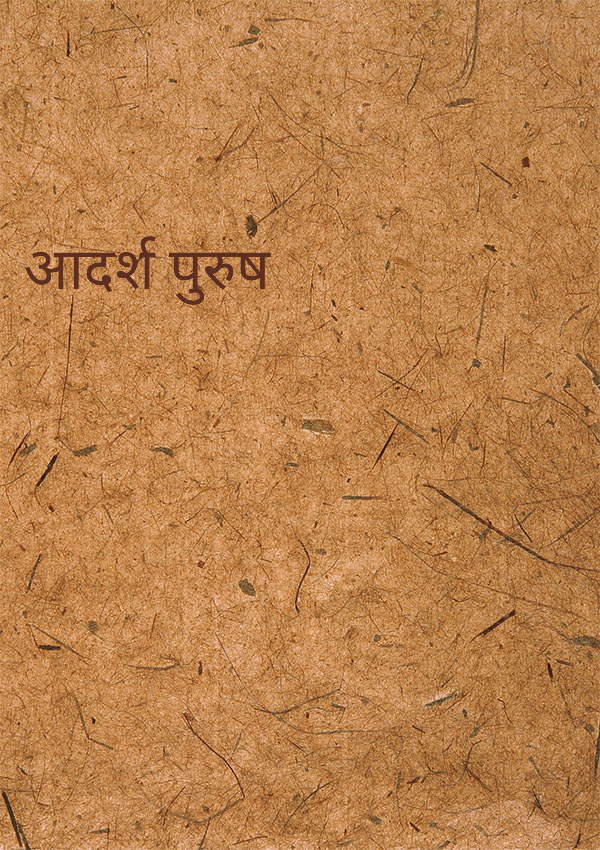 आदर्श पुरुष